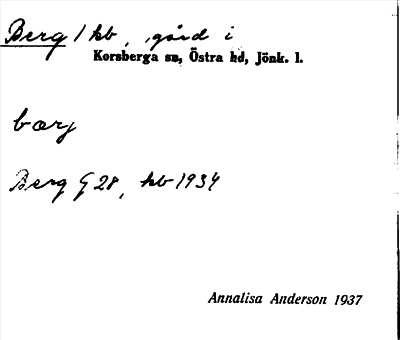 Berg 1 kb, gård i
Korsberga sn, Östra hd, Jönk. l.
bærj
Berg G 28, kb 1934
Annalisa Anderson 1937